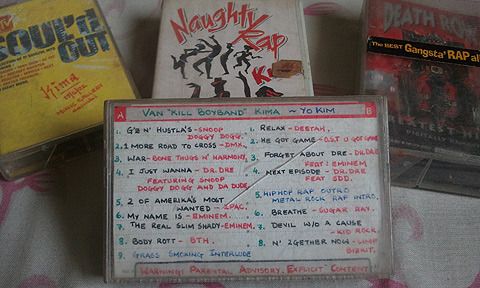 MTV
SOUL'd
OUT
Kima
Naughty
Rap
Ki
DEATH ROW
The BEST Gangsta' RAP al
A
VAN "KILL BOYBAND" KIMA ~ YO KIM
B
1. G'Z N' HUSTLA'S - SNOOP
DOGGY DOGG.
2. 1 MORE ROAD TO CROSS - DMX.
3. WAR - BONE THUGS N' HARMONY.
4. I JUST WANNA - DR. DRE
FEATURING SNOOP
DOGGY DOGG AND DA DUDE.
5. 2 OF AMERIKA'S MOST
WANTED - 2PAC.
6. MY NAME IS - EMINEM.
7. THE REAL SLIM SHADY - EMINEM.
8. BODY ROTT - BTH.
9. GRASS SMOKING INTERLUDE
1. RELAX - DEETAH.
2. HE GOT GAME - O.S.T U GOT GAME
3. FORGET ABOUT DRE - DR. DRE
FEAT: EMINEM
4. NEXT EPISODE - DR. DRE
FEAT SDD.
5. HIPHOP RAP OUTRO
METAL ROCK RAP INTRO.
6. BREATHE - SUGAR RAY.
7. DEVIL W/O A CAUSE
- KID ROCK.
8. N' 2GETHER NOW - LIMP
BIZKIT.
WARNING: PARENTAL ADVISORY, EXPLICIT CONTENT